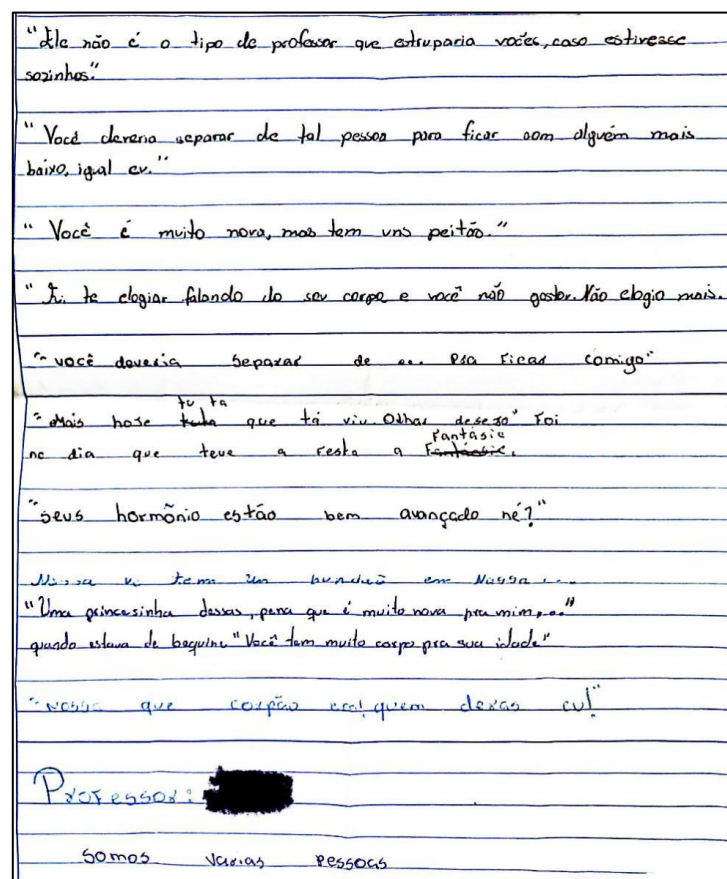 "Ele não é o tipo de professor que estruparia vocês, caso estivesse
sozinhos."
"Você deveria separar de tal pessoa para ficar com alguém mais
baixo, igual eu."
"Você é muito nova, mas tem uns peitão."
"Fui te elogiar falando do seu corpo e você não gostou. Não elogio mais.
"você deveria separar de ... pra ficar comigo"
tu ta
"Mais hoje que tá viu. Olhar desejo" Foi
Fantásie
no dia que teve a festa a Fantásie.
"seus hormônio estão bem avançado né?"
Nossa vc tem um bundão em Nossa ...
"Uma princesinha dessas, pena que é muito nova pra mim,..."
quando estava de bequine "Você tem muito corpo pra sua idade"
"Nossa que corpão quem deras eu!"
Professor:
somos varias pessoas